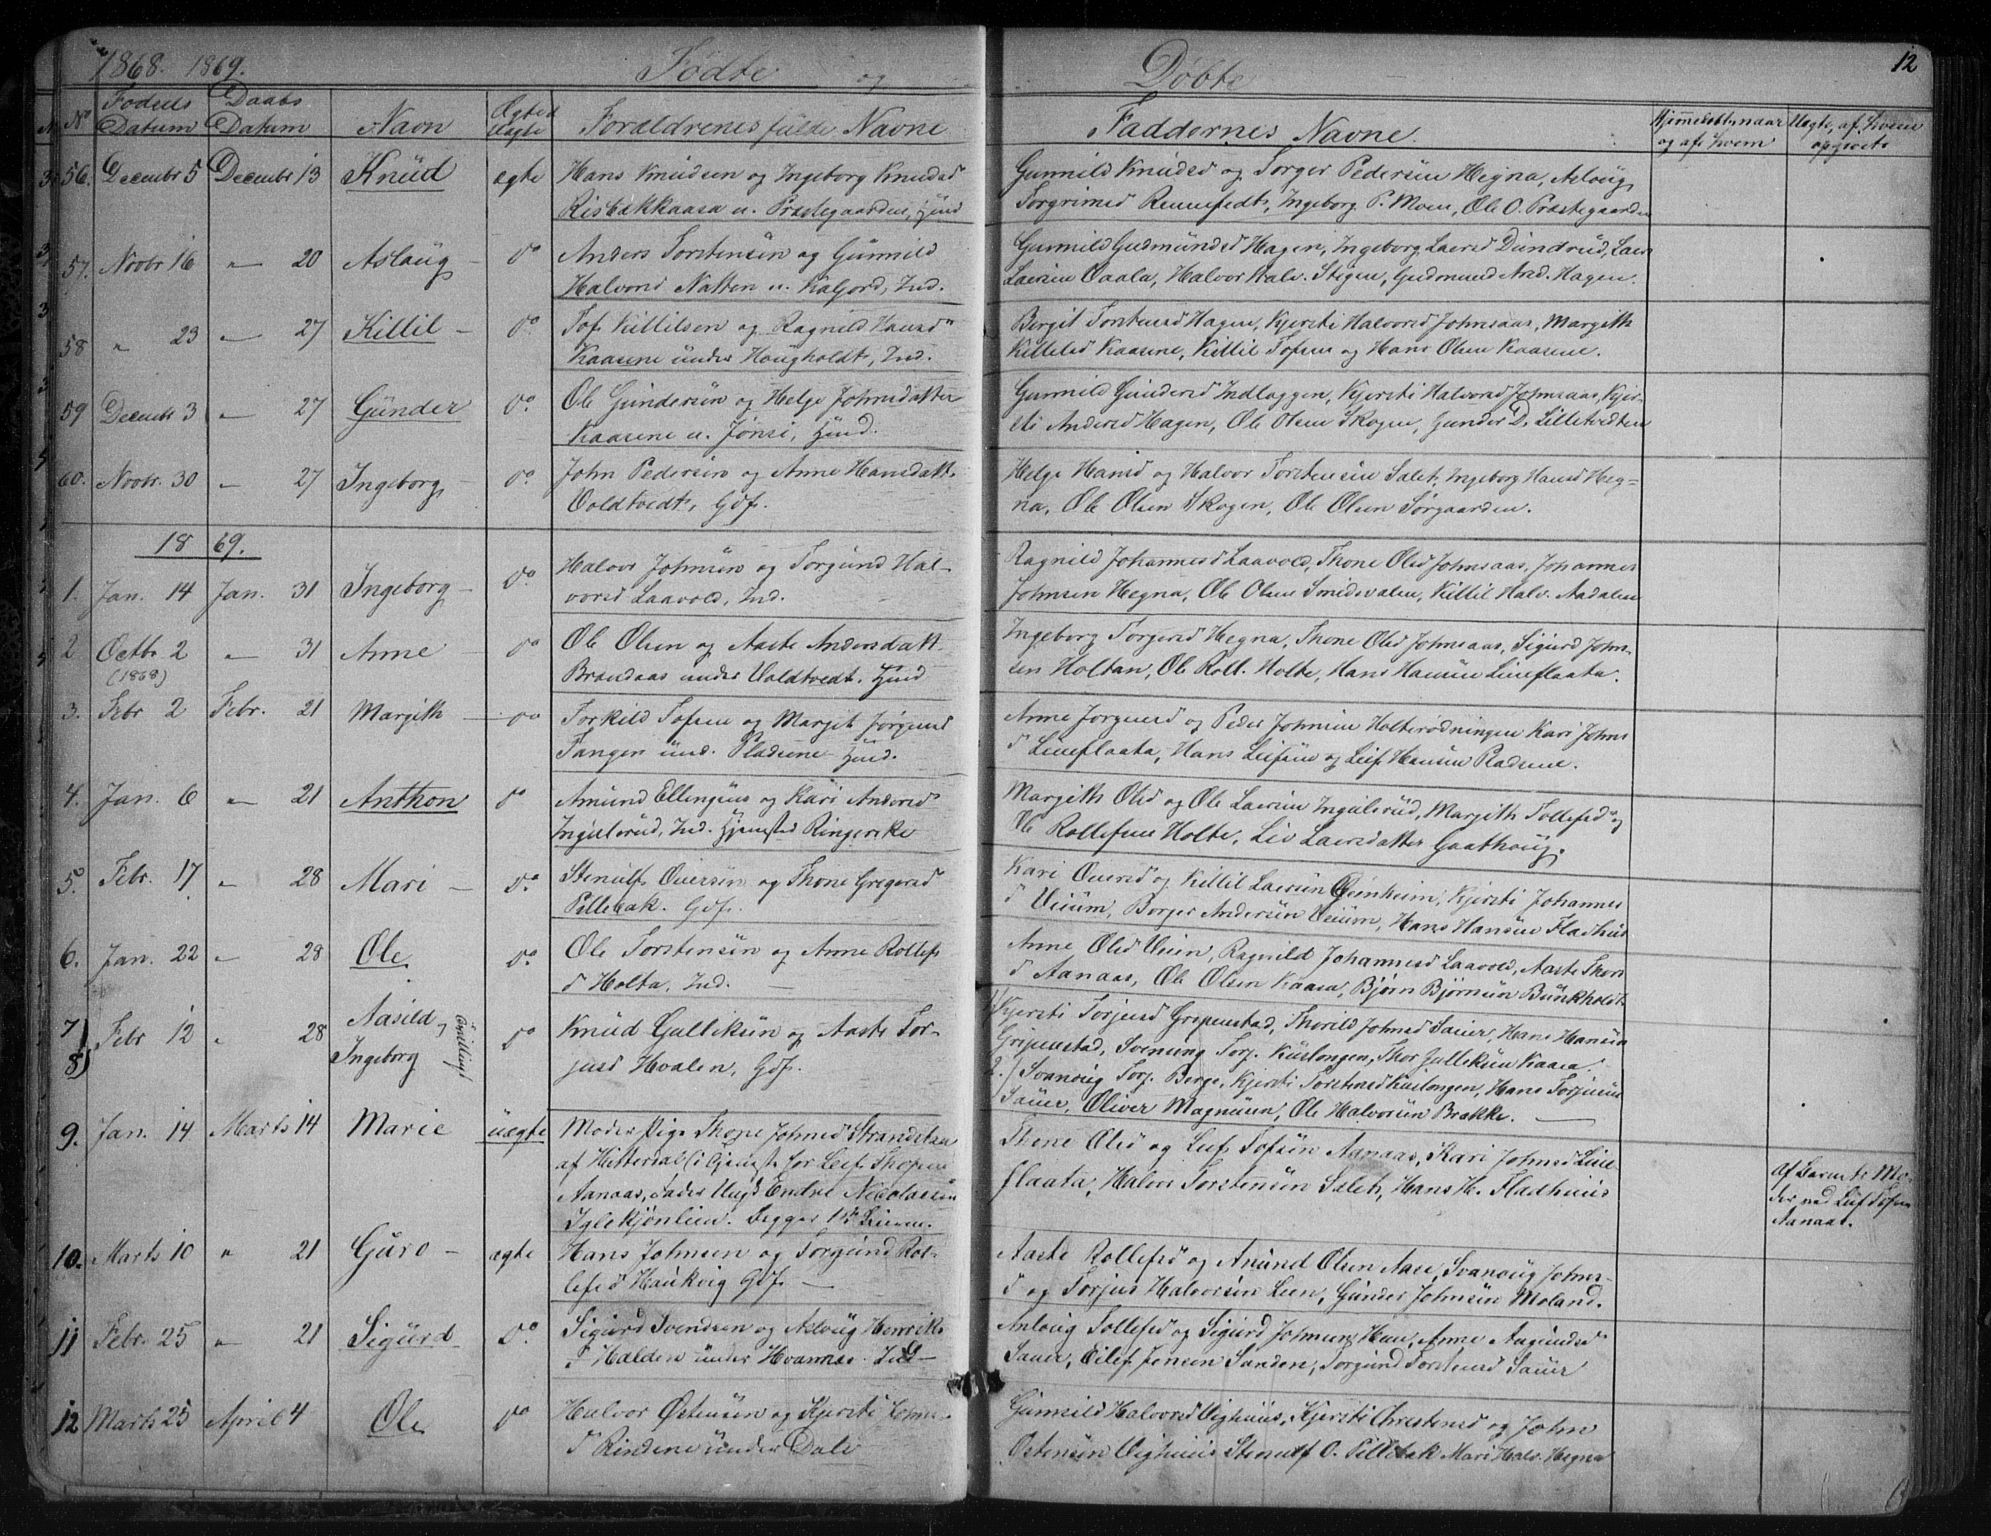 1868. 1869. Fødte og Døbte 12
No Fødsels Datum Daabs Datum Navn Ægte el Uægte Forældrenes fulde Navne Faddernes Navne. Hjemmedøbt, naar og af hvem Uægte, af hvem opgivet
56. Decembr 5 Decembr 13 Knüd ægte Hans Knudsen og Ingeborg Knudsd
Risbakkaasa u. Præstegaarden, Hmd
Gunnild Knudsd og Torger Pedersen Hegna, Aslaug
Torgrimsd Ingeborg P. Moen, Ole O. Præstegaarden
57. Novbr 16 " 20 Aslaug do Anders Torstensen og Gunnild
Halvorsd Natten u. Ind.
Gunnild Gudmundsd Hagen, Ingeborg Laersd Dundrud, Laers
Laersen Vaala, Halvor Halv. Stigen, Gudmund And. Hagen.
58 " 23 " 27 Killil do Tof Killilsen og Ragnild Hansd
Kaasene under Hougholdt, Ind.
Bergit Torstensd Hagen, Kjersti Halvorsd Johnsaas, Margith
Killilsd Kaasene, Killil Tofsen og Hans Olsen Kaasene.
59 Decembr 3 " 27 Günder do Ole Gundersen og Helge Johnsdatter
Kaasene u. Jønsi, Hmd.
Gunnild Gundersd Indlaggen, Kjersti Halvorsd Johnsaas, Kjer-
sti Andersd Hagen, Ole Olsen Skogen, Gunder D. Lilletvedten
60. Novbr. 30 " 27 Ingeborg do John Pedersen og Anne Hansdatt.
Voldtvedt, Gdf.
Helge Hansd og Halvor Torstensen Salet, Ingeborg Hansd Heg-
na, Ole Olsen Skogen, Ole Olsen Sørgaarden.
1869.
1. Jan. 14 Jan. 31 Ingeborg do Halvor Johnsen og Torgund Hal-
vorsd Laavold, Ind.
Ragnild Johannesd Laavold, Thone Olsd Johnsaas, Johannes
Johnsen Hegna, Ole Olsen Smedsvalen, Killil Halv. Aadalen
2 Octbr 2 (1868) " 31 Anne do Ole Olsen og Aaste Andersdatt.
Brandaas under Voldtvedt. Hmd
Ingeborg Torgersd Hegna, Thone Olsd Johnsaas, Sigurd John-
sen Holtan, Ole Roll. Holte, Hans Hansen Lieneflaata.
3. Febr 2 Febr. 21 Margith do Torkild Tofsen og Margit Jørgensd
Tangen und. Pladsene Hmd.
Anne Jørgensd og Peder Johnsen Holterødningen Kari Johns
d Lieneflaata, Hans Leifsen og Leif Hansen Pladsene.
4. Jan. 6 " 21 Anthon do Amund Ellingsens og Kari Andersd
Ingulsrud, Ind. Hjemsted Ringerike
Margith Olsd og Ole Laersen Ingulsrud, Margith Tollefsd og
Ole Rollefsen Holte, Liv Laersdatter Gaathoug.
5. Febr. 17 " 28 Mari do Stenulf Oversen og Thone Gregersd
Pillebak. Gdf.
Kari Oversd og Killil Laersen Kjersti Johannes
d Veium, Borger Andersen Veium, Hans Hansen Fladhus
6. Jan. 22 " 28 Ole do Ole Torstensen og Anne Rollefs
d Holta, Ind.
Anne Olsd Veien, Ragnild Johannesd Laavold, Aaste Thors
d Aanaas, Ole Olsen Kaasa, Bjørn Bjørnsen Bünkholdt
7) 8) Febr 12 " 28 Aasild, Ingeborg (Tvillinger) do Knud Gulliksen og Aaste Tor-
jusd Hvalen, Gdf.
1/ Kjersti Torjusd Gropenstad, Thorild Johnsd Sauer, Hans Hansen
Gripenstad, Svenung Torj. Küslongen, Thor Gulliksen Kaasa.
2./ Svanoug Torj. Berge, Kjersti Torstensd Küslongen, Hans Torjusen
Sauer, Oliver Magnusen, Ole Halvorsen Brække.
9. Jan. 14 Marts 14 Marie üægte Moder Pige Thone Johnsd Strandstøa
af Hitterdal (i Tjeneste for Leif Thorsen
Aanaas, Fader Ungk Endre Nicolaisen
Iglekjønlien. Begges 1ste Leierm.
Thone Olsd og Leif Tofsen Aanaas, Kari Johnsd Liene-
flaata, Halvor Torstensen Salet, Hans H. Fladhuus
Af Barnets Mo-
der ved Leif Tofsen
Aanaas.
10. Marts 10 " 21 Güro ægte Hans Johnsen og Torgund Rol-
lefsd Haukvig Gdf.
Aaste Rollefsd og Amund Olsen Aase, Svanoug Johns-
d og Torjus Halvorsen Lien, Gunder Johnsen Moland.
11 Febr. 25 " 21 Sigurd do Sigurd Svendsen og Aslaug Henriks
d Halden under Hvamne. Ind
Aslaug Tollefsd og Sigurd Johnsen Haue, Anne Aagundsd
Sauer, Eilef Jensen Sanden, Torgund Torstensd Sauer
12 Marts 25 April 4 Ole do Halvor Østensen og Kjersti Johns-
d Rindene under Dale
Gunnild Halvorsd Vighuus, Kjersti Christensd og John
Østensen Vighuus Stenulf O. Pillebak Mari Halv. Hegna